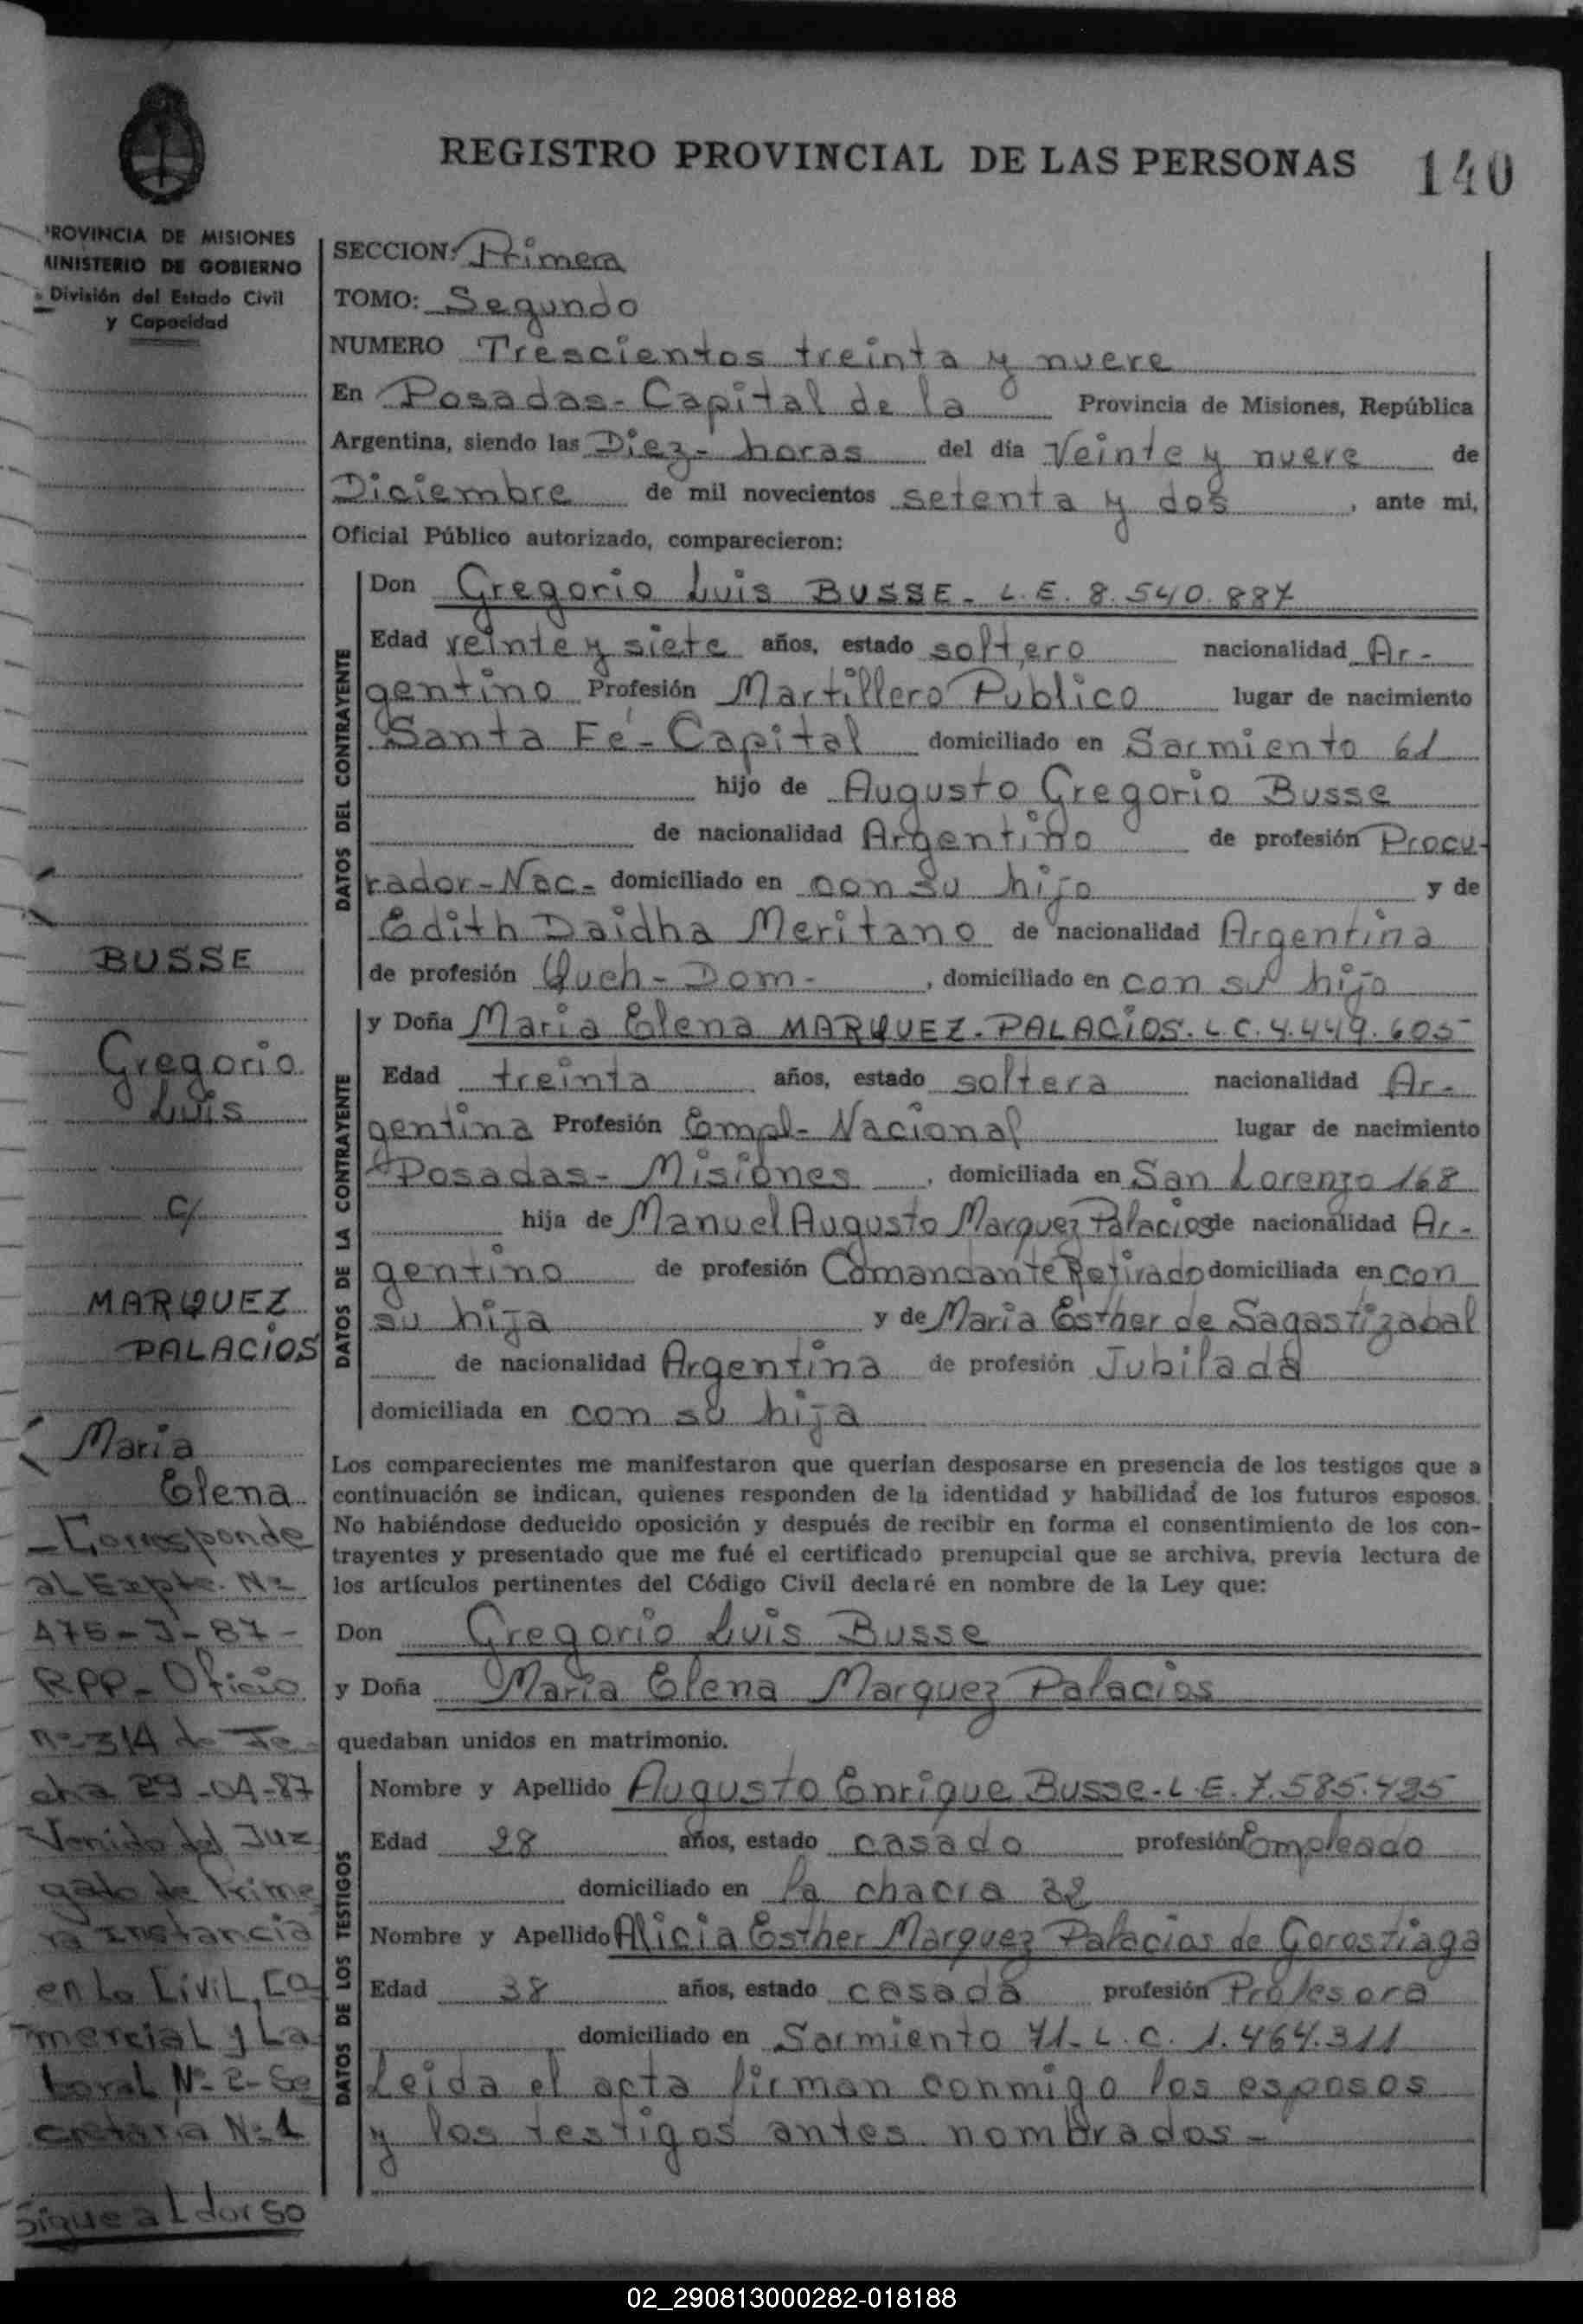 REGISTRO PROVINCIAL DE LAS PERSONAS 140
PROVINCIA DE MISIONES
MINISTERIO DE GOBIERNO
División del Estado Civil
y Capacidad
SECCION: Primera
TOMO: Segundo
NUMERO Trescientos treinta y nueve
En Posadas - Capital de la Provincia de Misiones, República
Argentina, siendo las Diez - horas del día Veinte y nueve de
Diciembre de mil novecientos setenta y dos, ante mi,
Oficial Público autorizado, comparecieron:
DATOS DEL CONTRAYENTE
Don Gregorio Luis BUSSE - L.E. 8.540.887
Edad veinte y siete años, estado soltero nacionalidad Ar-
gentino Profesión Martillero Publico lugar de nacimiento
Santa Fé - Capital domiciliado en Sarmiento 61
hijo de Augusto Gregorio Busse
de nacionalidad Argentino de profesión Procu-
rador - Nac - domiciliado en con su hijo y de
Edith Daidha Meritano de nacionalidad Argentina
de profesión Queh - Dom - , domiciliado en con su hijo
DATOS DE LA CONTRAYENTE
y Doña Maria Elena MARQUEZ - PALACIOS. L.C. 4.449.605
Edad treinta años, estado soltera nacionalidad Ar-
gentina Profesión Empl - Nacional lugar de nacimiento
Posadas - Misiones, domiciliada en San Lorenzo 168
hija de Manuel Augusto Marquez Palacios de nacionalidad Ar-
gentino de profesión Comandante Retirado domiciliada en con
su hija y de Maria Esther de Sagastizabal
de nacionalidad Argentina de profesión Jubilada
domiciliada en con su hija
Los comparecientes me manifestaron que querían desposarse en presencia de los testigos que a
continuación se indican, quienes responden de la identidad y habilidad de los futuros esposos.
No habiéndose deducido oposición y después de recibir en forma el consentimiento de los con-
trayentes y presentado que me fué el certificado prenupcial que se archiva, previa lectura de
los artículos pertinentes del Código Civil declaré en nombre de la Ley que:
Don Gregorio Luis Busse
y Doña Maria Elena Marquez Palacios
quedaban unidos en matrimonio.
DATOS DE LOS TESTIGOS
Nombre y Apellido Augusto Enrique Busse - L.E. 7.585.495
Edad 28 años, estado casado profesión Empleado
domiciliado en la chacra 32
Nombre y Apellido Alicia Esther Marquez Palacios de Gorostiaga
Edad 38 años, estado casada profesión Profesora
domiciliado en Sarmiento 71 - L.C. 1.464.311
Leida el acta firman conmigo los esposos
y los testigos antes nombrados -
BUSSE
Gregorio
Luis
c/
MARQUEZ
PALACIOS
Maria
Elena
- Corresponde
al Expte. Nº
475 - J - 87 -
RPP - Oficio
nº 314 de fe-
cha 29 - 04 - 87
Venido del Juz
gado de Prime
ra Instancia
en lo Civil, Co
mercial y La
boral Nº 2 - Se
cretaria Nº 1
Sigue al dorso
02_290813000282-018188